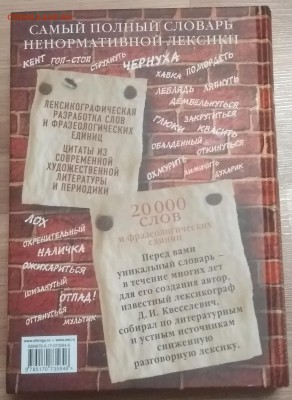 САМЫЙ ПОЛНЫЙ СЛОВАРЬ
НЕНОРМАТИВНОЙ ЛЕКСИКИ
КЕНТ
ГОП-СТОП
СТРУХНУТЬ
ЧЕРНУХА
ХАВКА
ЛЕБЛЯДЬ
ХЛЯБНУТЬ
ДЕМБЕЛЬНУТЬСЯ
ЗАКРУТИТЬСЯ
ГЛЮКИ
КВАСИТЬ
ОБАЛДЕННЫЙ
ОТКИНУТЬСЯ
ОХМУРИТЬ
ЛИМОНИТЬ
БУХАРИК
ЛЕКСИКОГРАФИЧЕСКАЯ
РАЗРАБОТКА СЛОВ
И ФРАЗЕОЛОГИЧЕСКИХ
ЕДИНИЦ
ЦИТАТЫ ИЗ
СОВРЕМЕННОЙ
ХУДОЖЕСТВЕННОЙ
ЛИТЕРАТУРЫ
И ПЕРИОДИКИ
ЛОХ
ОХРЕНИТЕЛЬНЫЙ
НАЛИЧКА
ОЖИХАРИТЬСЯ
ШИЗАНУТЫЙ
ОТПАД!
ОТТЯНУТЬСЯ
МУЛЬТИК
20 000
СЛОВ
и фразеологических
единиц
Перед вами
уникальный словарь –
в течение многих лет
для его создания автор,
известный лексикограф
Д. И. Квеселевич,
собирал по литературным
и устным источникам
сниженную
разговорную лексику.